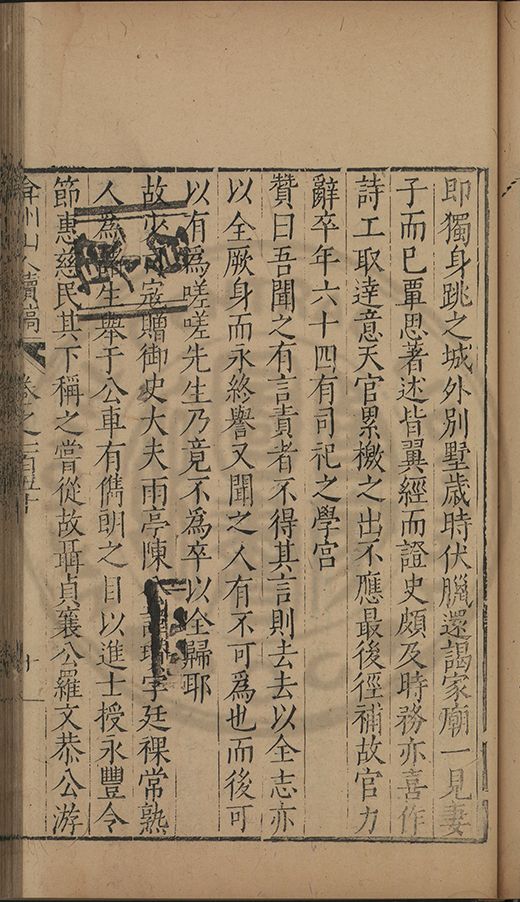 即獨身跳之城外別墅歲時伏臘還謁家廟一見妻
子而巳覃思著述皆翼經而證史頗及時務亦喜作
詩工取達意天官累檄之出不應最後徑補故官力
辭卒年六十四有司祀之學宮
贊曰吾聞之有言責者不得其言則去去以全志亦
以全厥身而永終譽又聞之人有不可爲也而後可
以有爲嗟嗟先生乃竟不爲卒以全歸耶
故少寇贈御史大夫雨亭陳字廷祼常熟
人爲生舉于公車有儁朗之目以進士授永豐令
節惠慈民其下稱之嘗從故聶貞襄公羅文恭公游
弇州山人續稿 卷之一百